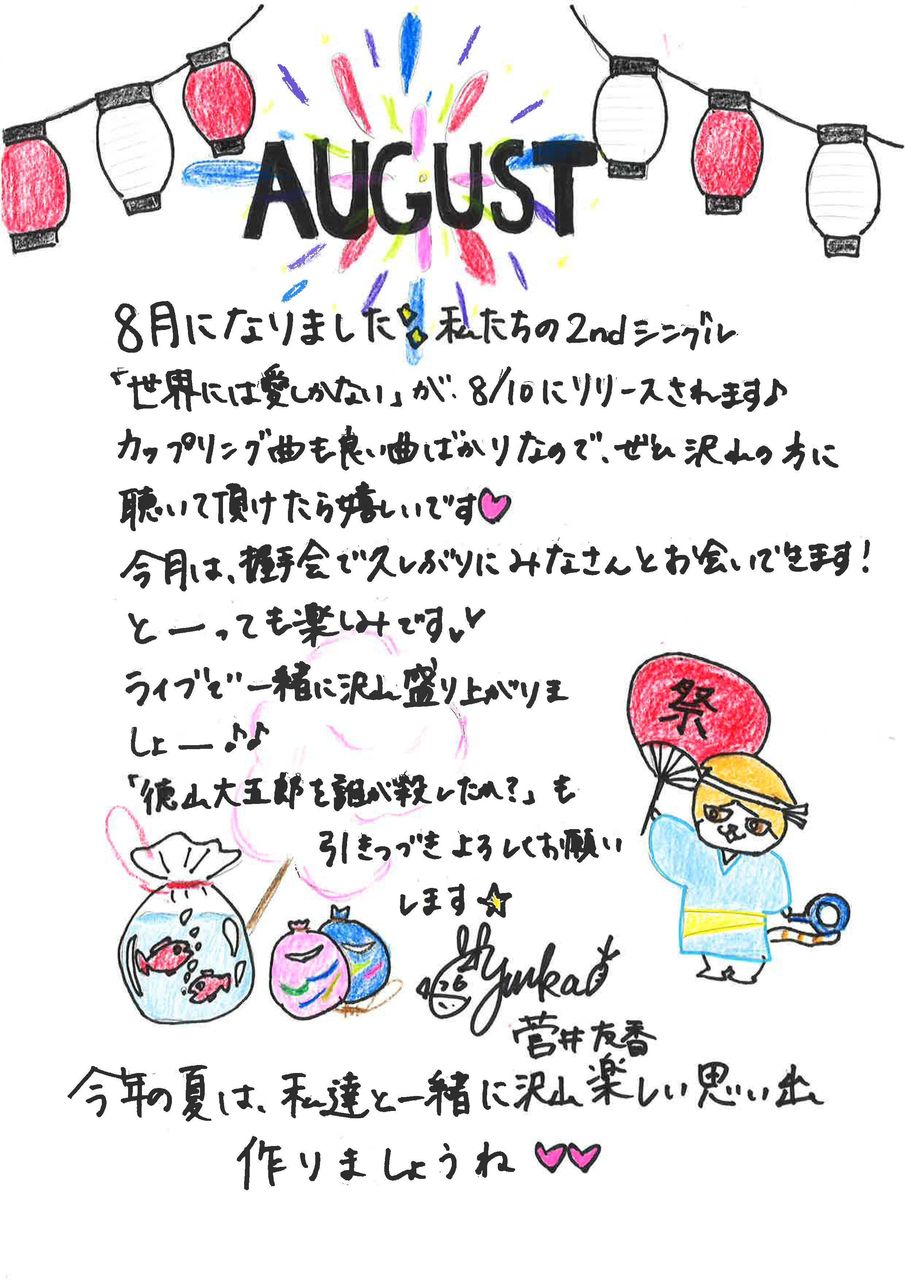 AUGUST
8月になりました 私たちの2ndシングル
「世界には愛しかない」が、8/10にリリースされます♪
カップリング曲も良い曲ばかりなので、ぜひ沢山の方に
聴いて頂けたら嬉しいです♥
今月は、握手会で久しぶりにみなさんとお会いできます!
とーっても楽しみです♥♥
ライブで一緒に沢山盛り上がりま
しょー♪♪
祭
「徳山大五郎を誰が殺したか?」も
引きつづきよろしくお願い
します☆
Yuuka
菅井友香
今年の夏は、私達と一緒に沢山楽しい思い出
作りましょうね♥♥